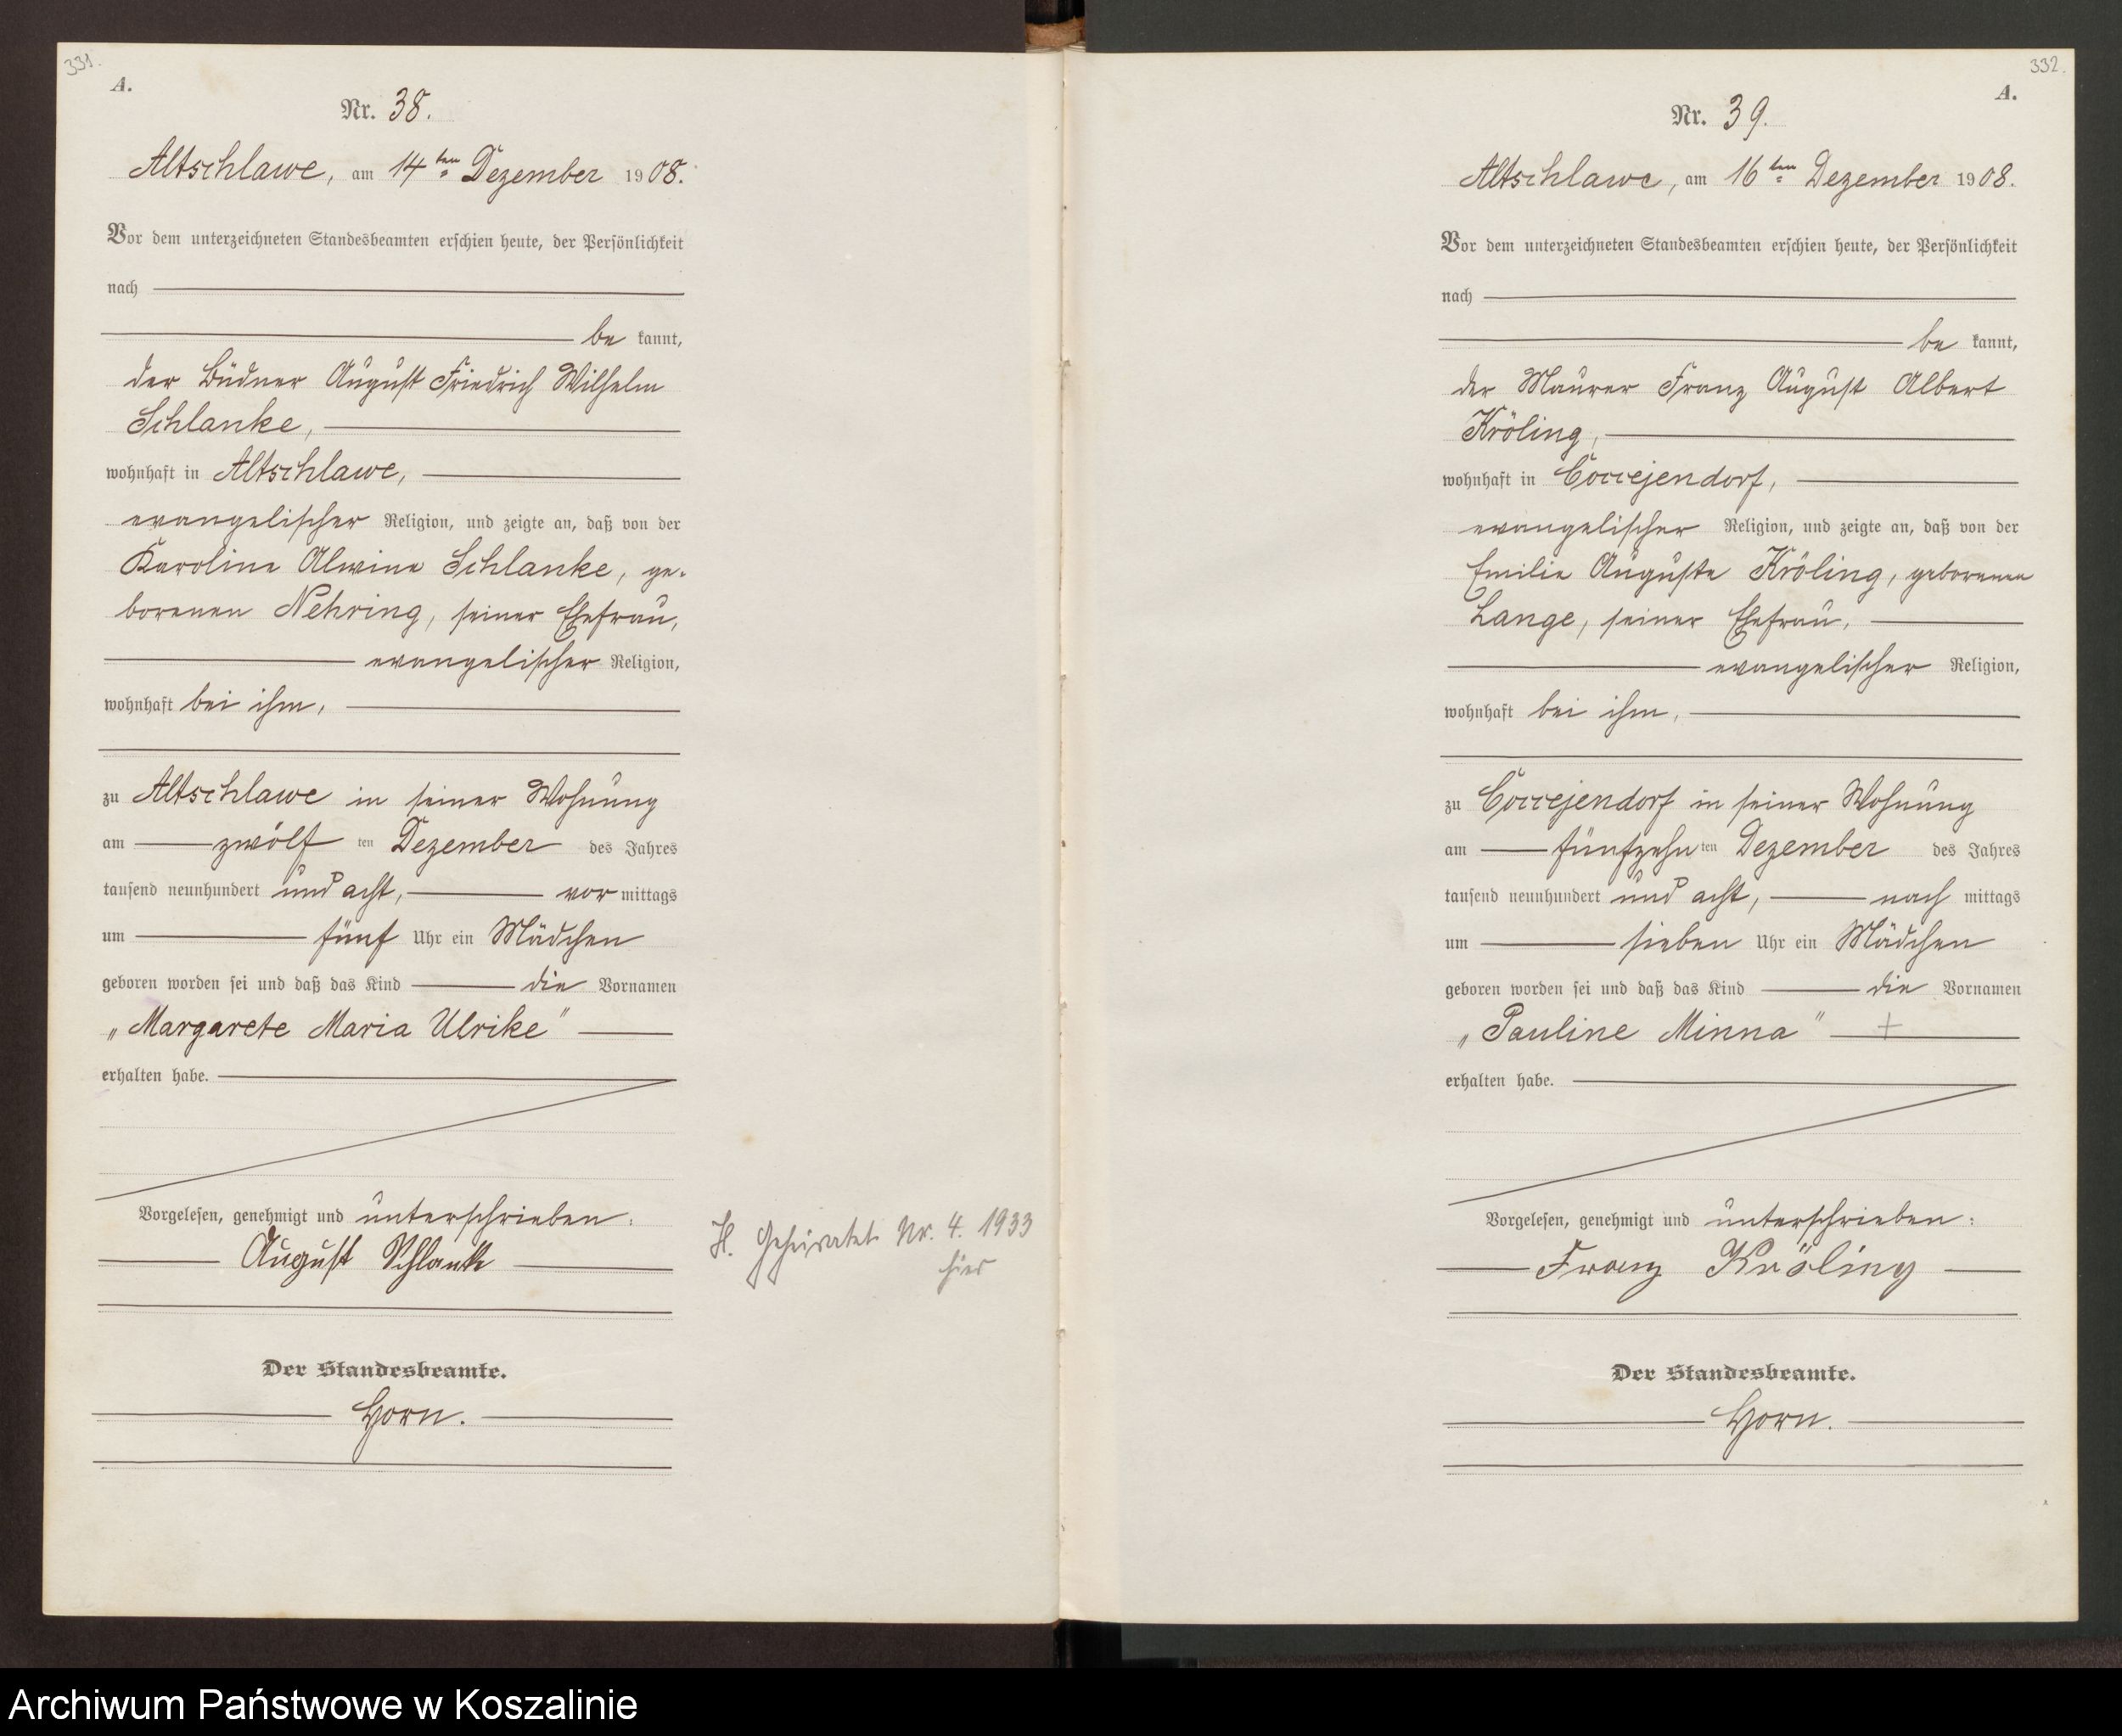 331.
A.
Nr. 38.
Altschlawe, am 14ten Dezember 1908.
Vor dem unterzeichneten Standesbeamten erschien heute, der Persönlichkeit
nach
be kannt,
der Büdner August Friedrich Wilhelm
Schlanke,
wohnhaft in Altschlawe,
evangelischer Religion, und zeigte an, daß von der
Karoline Alwine Schlanke, ge-
borenen Nehring, seiner Ehefrau,
evangelischer Religion,
wohnhaft bei ihm,
zu Altschlawe in seiner Wohnung
am zwölf ten Dezember des Jahres
tausend neunhundert und acht, vor mittags
um fünf Uhr ein Mädchen
geboren worden sei und daß das Kind die Vornamen
„Margarete Maria Ulrike"
erhalten habe.
Vorgelesen, genehmigt und unterschrieben:
August Schlanke
H. Geheiratet Nr. 4. 1933
hier
Der Standesbeamte.
Horn.
332.
A.
Nr. 39.
Altschlawe, am 16ten Dezember 1908.
Vor dem unterzeichneten Standesbeamten erschien heute, der Persönlichkeit
nach
be kannt,
der Maurer Franz August Albert
Kröling,
wohnhaft in Coccejendorf,
evangelischer Religion, und zeigte an, daß von der
Emilie Auguste Kröling, geborenen
Lange, seiner Ehefrau,
evangelischer Religion,
wohnhaft bei ihm,
zu Coccejendorf in seiner Wohnung
am fünfzehn ten Dezember des Jahres
tausend neunhundert und acht, nach mittags
um sieben Uhr ein Mädchen
geboren worden sei und daß das Kind die Vornamen
„Pauline Minna" +
erhalten habe.
Vorgelesen, genehmigt und unterschrieben:
Franz Kröling
Der Standesbeamte.
Horn.
Archiwum Państwowe w Koszalinie